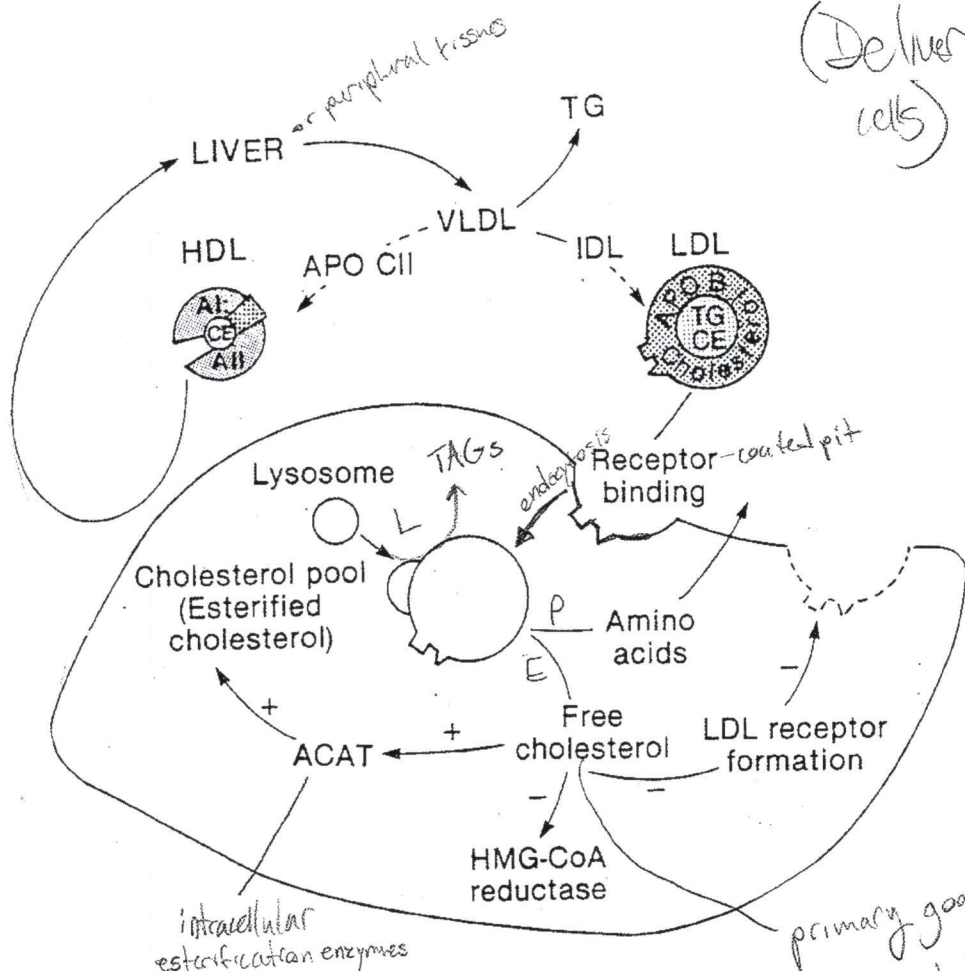 (Deliver
cells)
or peripheral tissues
LIVER
TG
VLDL
HDL
APO CII
IDL
LDL
AI:
CE
AII
APO B
TG
CE
Cholestero
Lysosome
TAGs
endocytosis
Receptor
binding
-coated pit
L
Cholesterol pool
(Esterified
cholesterol)
P
Amino
acids
E
+
ACAT
+
Free
cholesterol
−
−
−
LDL receptor
formation
HMG-CoA
reductase
intracellular
esterification enzymes
primary